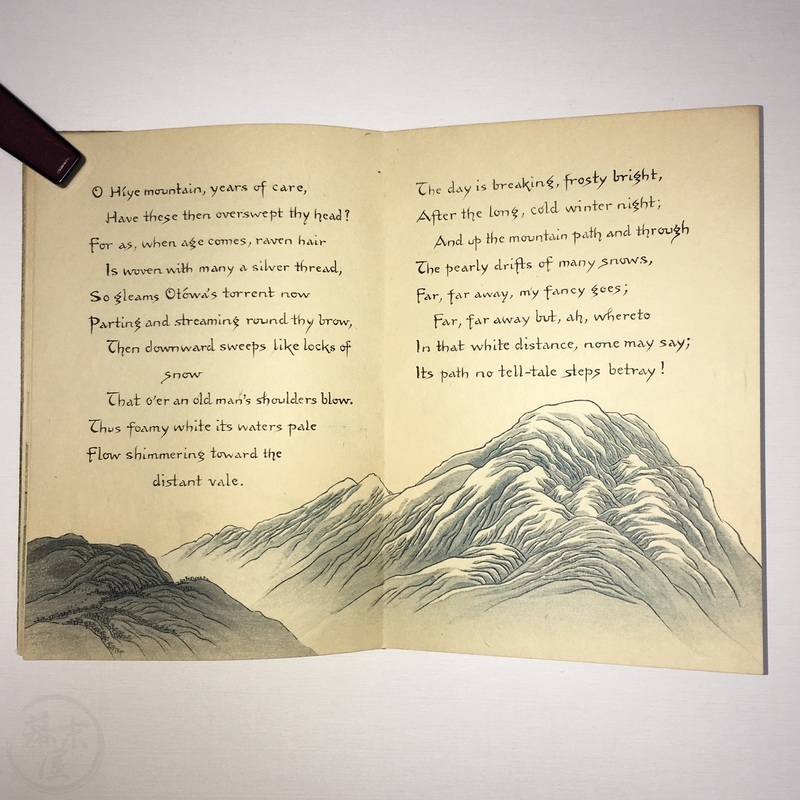 O Hiye mountain, years of care,
Have these then overswept thy head?
For as, when age comes, raven hair
Is woven with many a silver thread,
So gleams Otówa's torrent now
Parting and streaming round thy brow,
Then downward sweeps like locks of
snow
That o'er an old man's shoulders blow.
Thus foamy white its waters pale
Flow shimmering toward the
distant vale.
The day is breaking, frosty bright,
After the long, cold winter night;
And up the mountain path and through
The pearly drifts of many snows,
Far, far away, my fancy goes;
Far, far away but, ah, whereto
In that white distance, none may say;
Its path no tell-tale steps betray!
幕末
屋